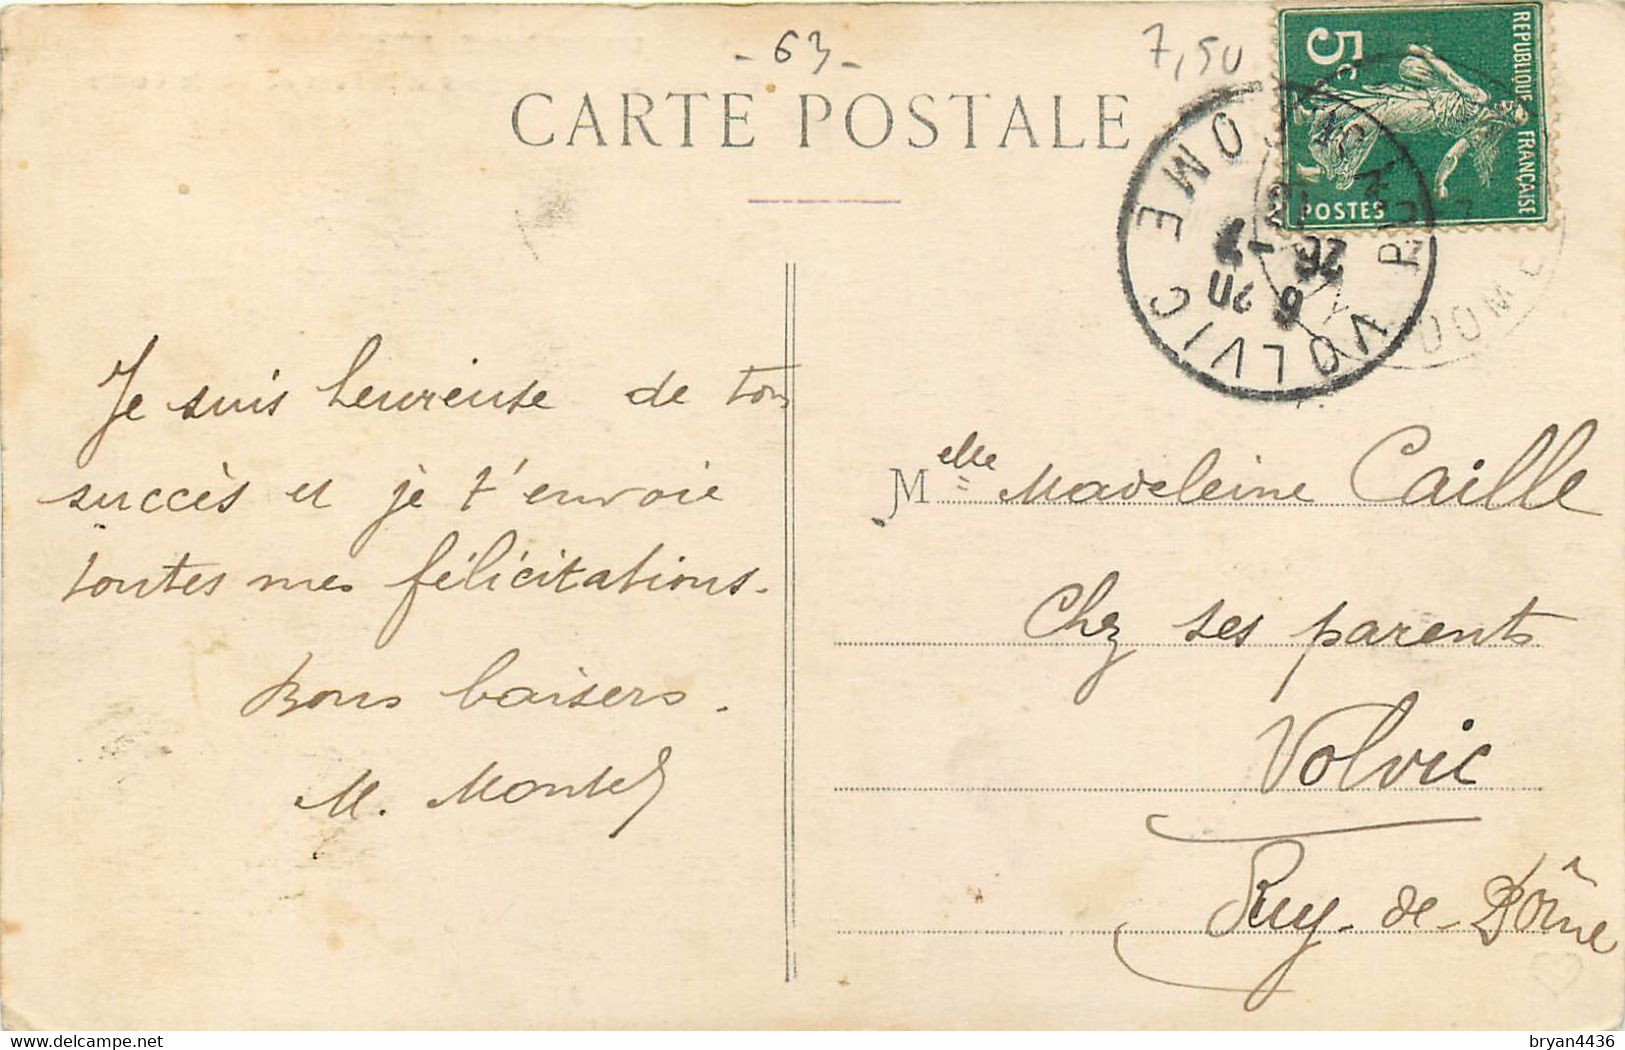 - 63 -
7,50
CARTE POSTALE
5c
REPUBLIQUE FRANÇAISE
POSTES
VOLVIC
PUY
DOME
6
20
DOME
Je suis heureuse de ton
succès et je t'envoie
toutes mes félicitations.
Bons baisers.
M. Montel
Melle Madeleine Caille
Chez ses parents
Volvic
Puy-de-Dôme
www.delcampe.net
bryan4436